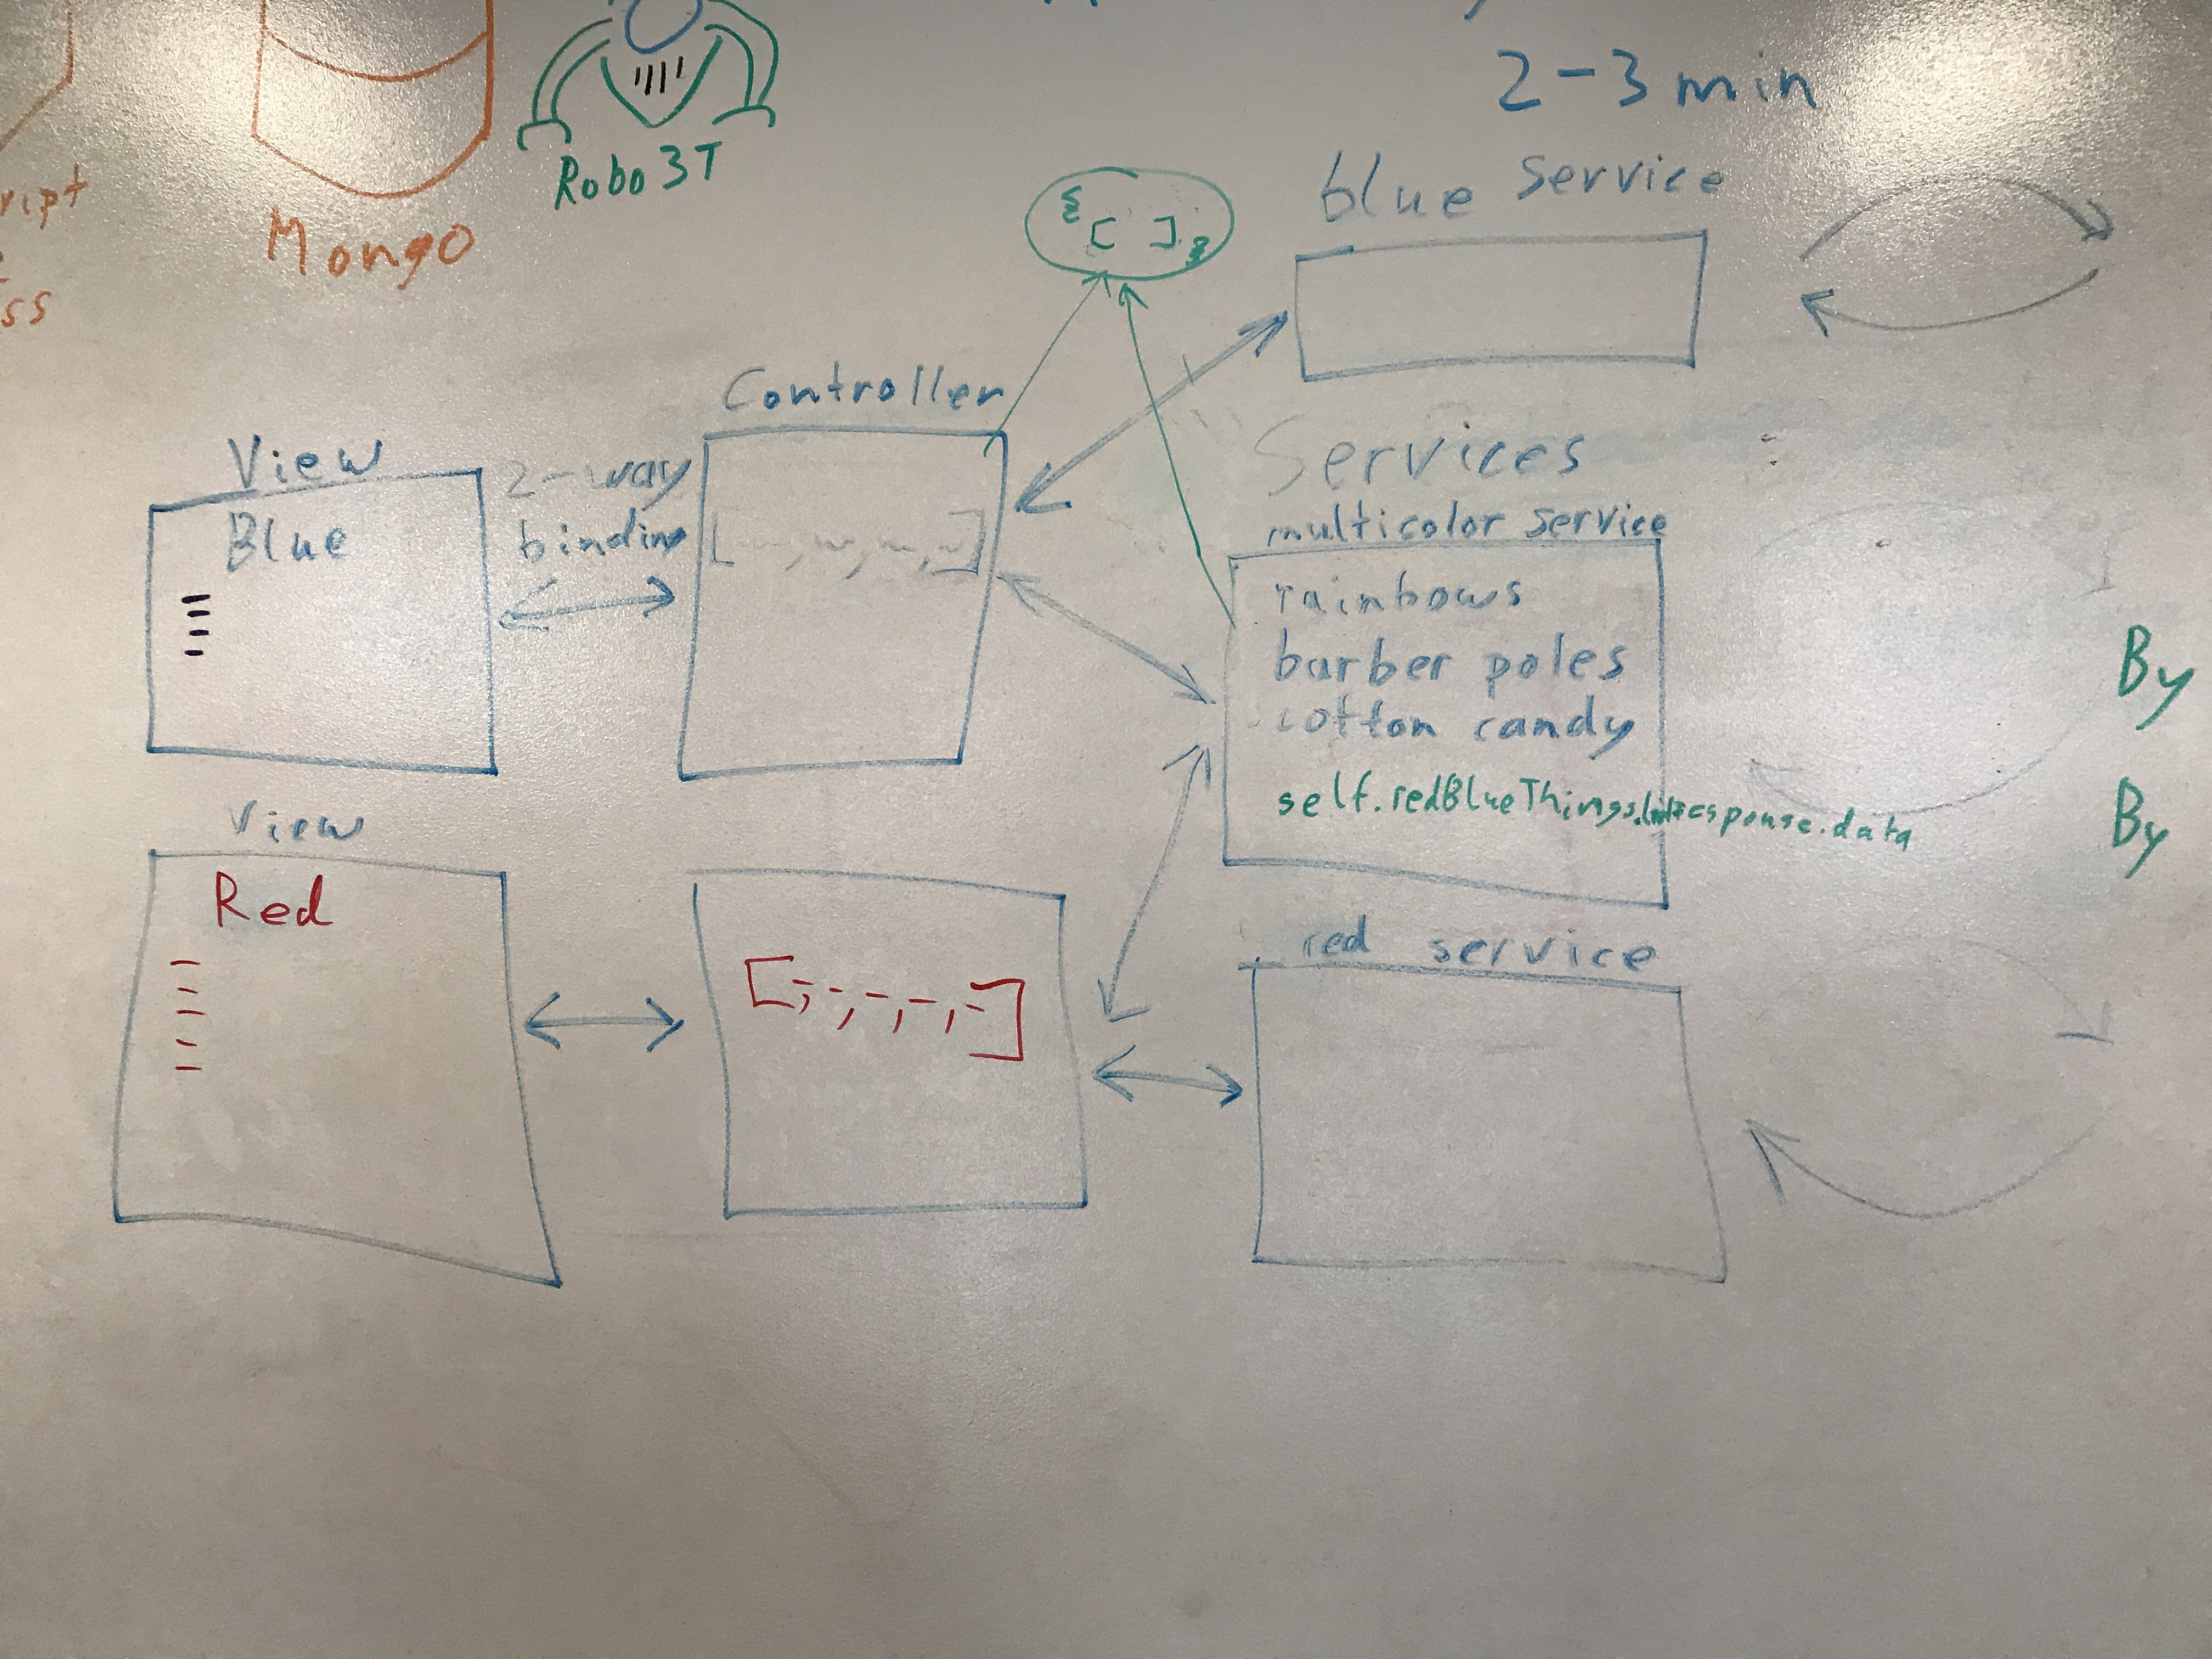 2-3 min
Robo 3T
ript
Mongo
ss
blue service
{ [ ] }
Controller
View
2-way
binding
Blue
Services
multicolor service
rainbows
barber poles
cotton candy
self.redBlueThings.
response.data
By
By
View
Red
[-,-,-,-,-]
red service